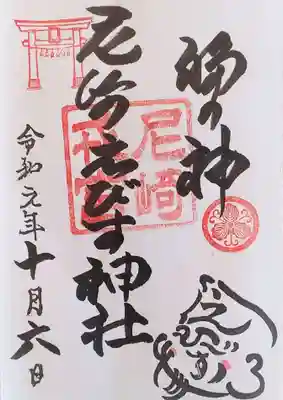 尼崎えびす神社
尼崎
えびす
令和元年十月六日